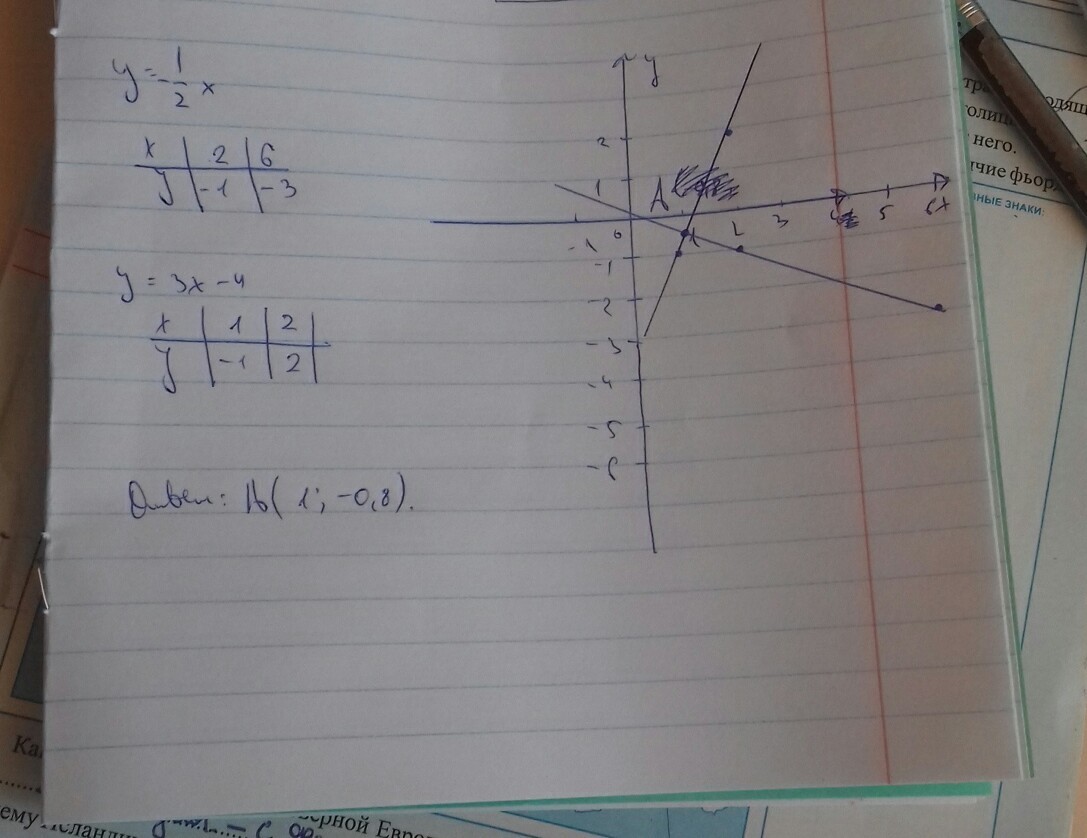 y = -1/2 x
x | 2 | 6
y | -1 | -3
y = 3x - 4
x | 1 | 2
y | -1 | 2
Ответ: A( 1; -0,8).
y
2
1
A
-1 0 1 2 3 4 5 6 x
-1
-2
-3
-4
-5
-6
него.
чие фьор
НЫЕ ЗНАКИ:
Ка
ему Исланди
верной Евро